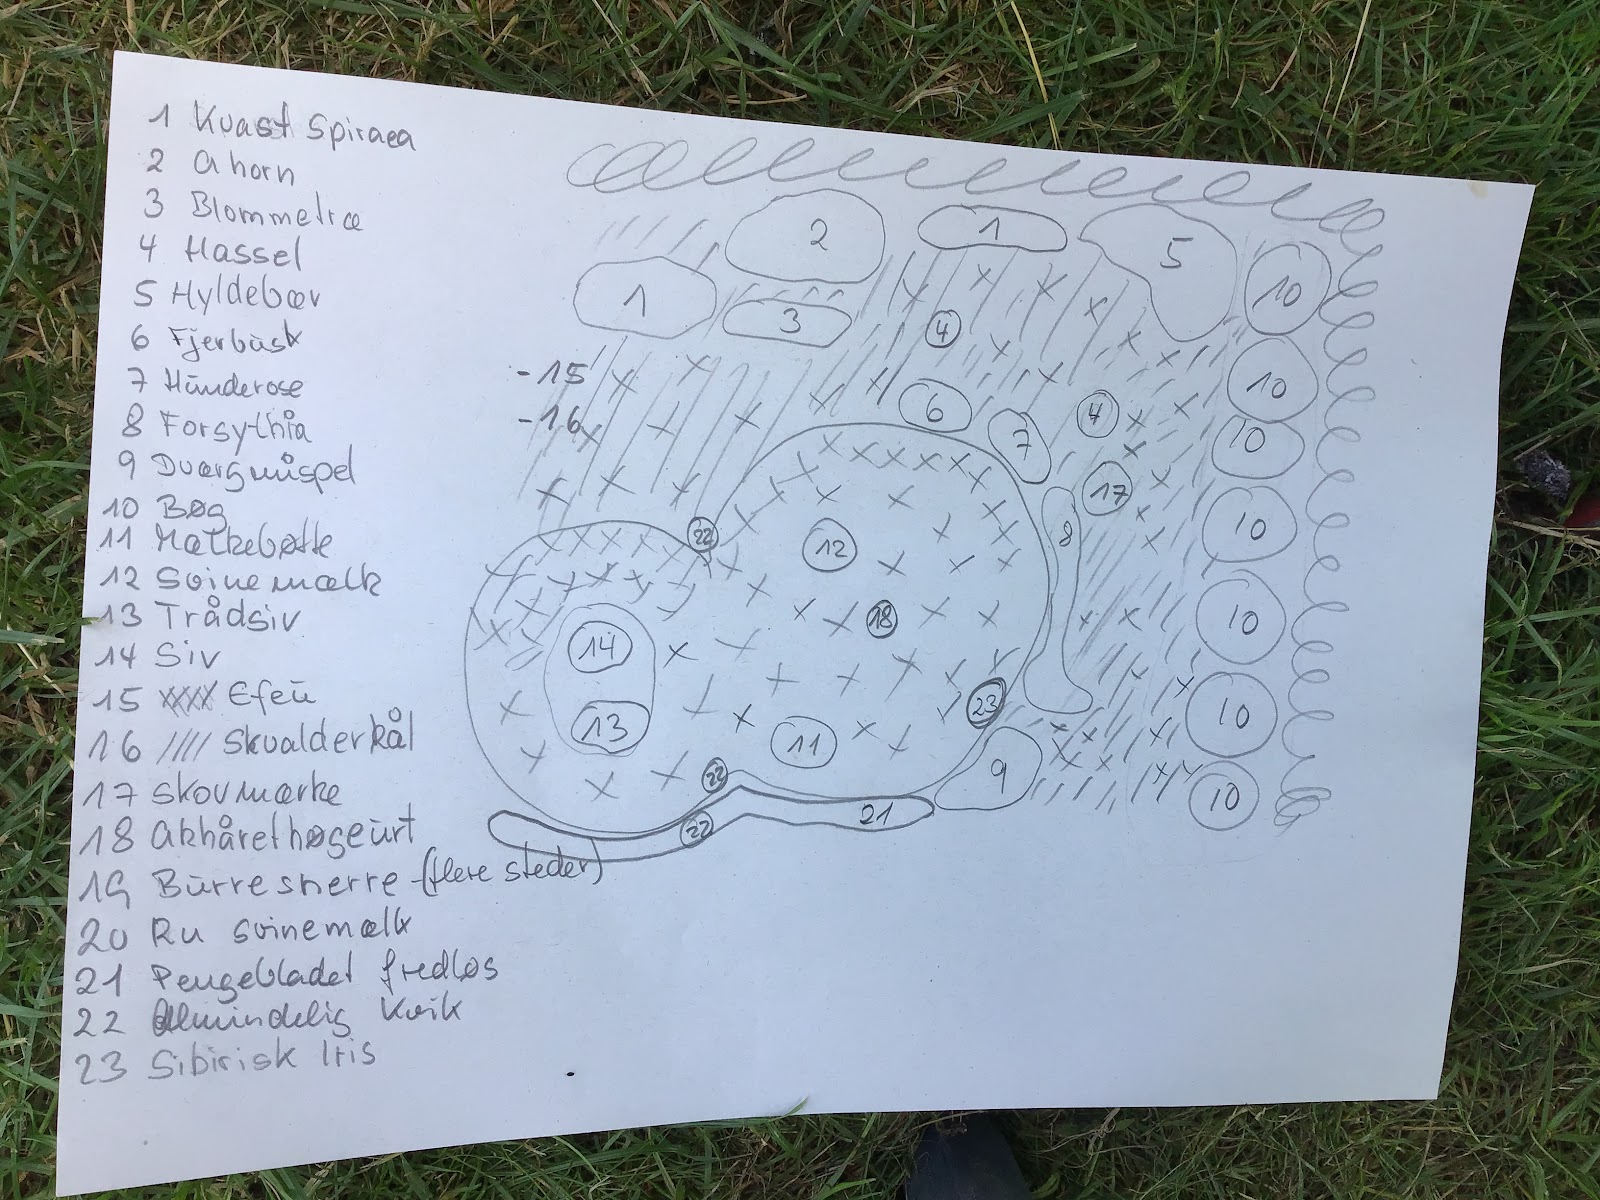 1 Kvast Spiraea
2 Ahorn
3 Blommetræ
4 Hassel
5 Hyldebær
6 Fjerbusk
7 Hunderose
8 Forsythia
9 Dværgmispel
10 Bøg
11 Mælkebøtte
12 Svinemælk
13 Trådsiv
14 Siv
15 XXXX Efeu
16 //// Skvalderkål
17 Skovmærke
18 Akhårethøgeurt
19 Burresnerre - (flere steder)
20 Ru svinemælk
21 Pengebladet fredløs
22 Almindelig Kvik
23 Sibirisk Iris
2
1
5
10
1
3
4
- 15
10
- 16
6
4
7
10
17
22
12
8
10
14
18
10
13
23
10
11
22
9
10
22
21